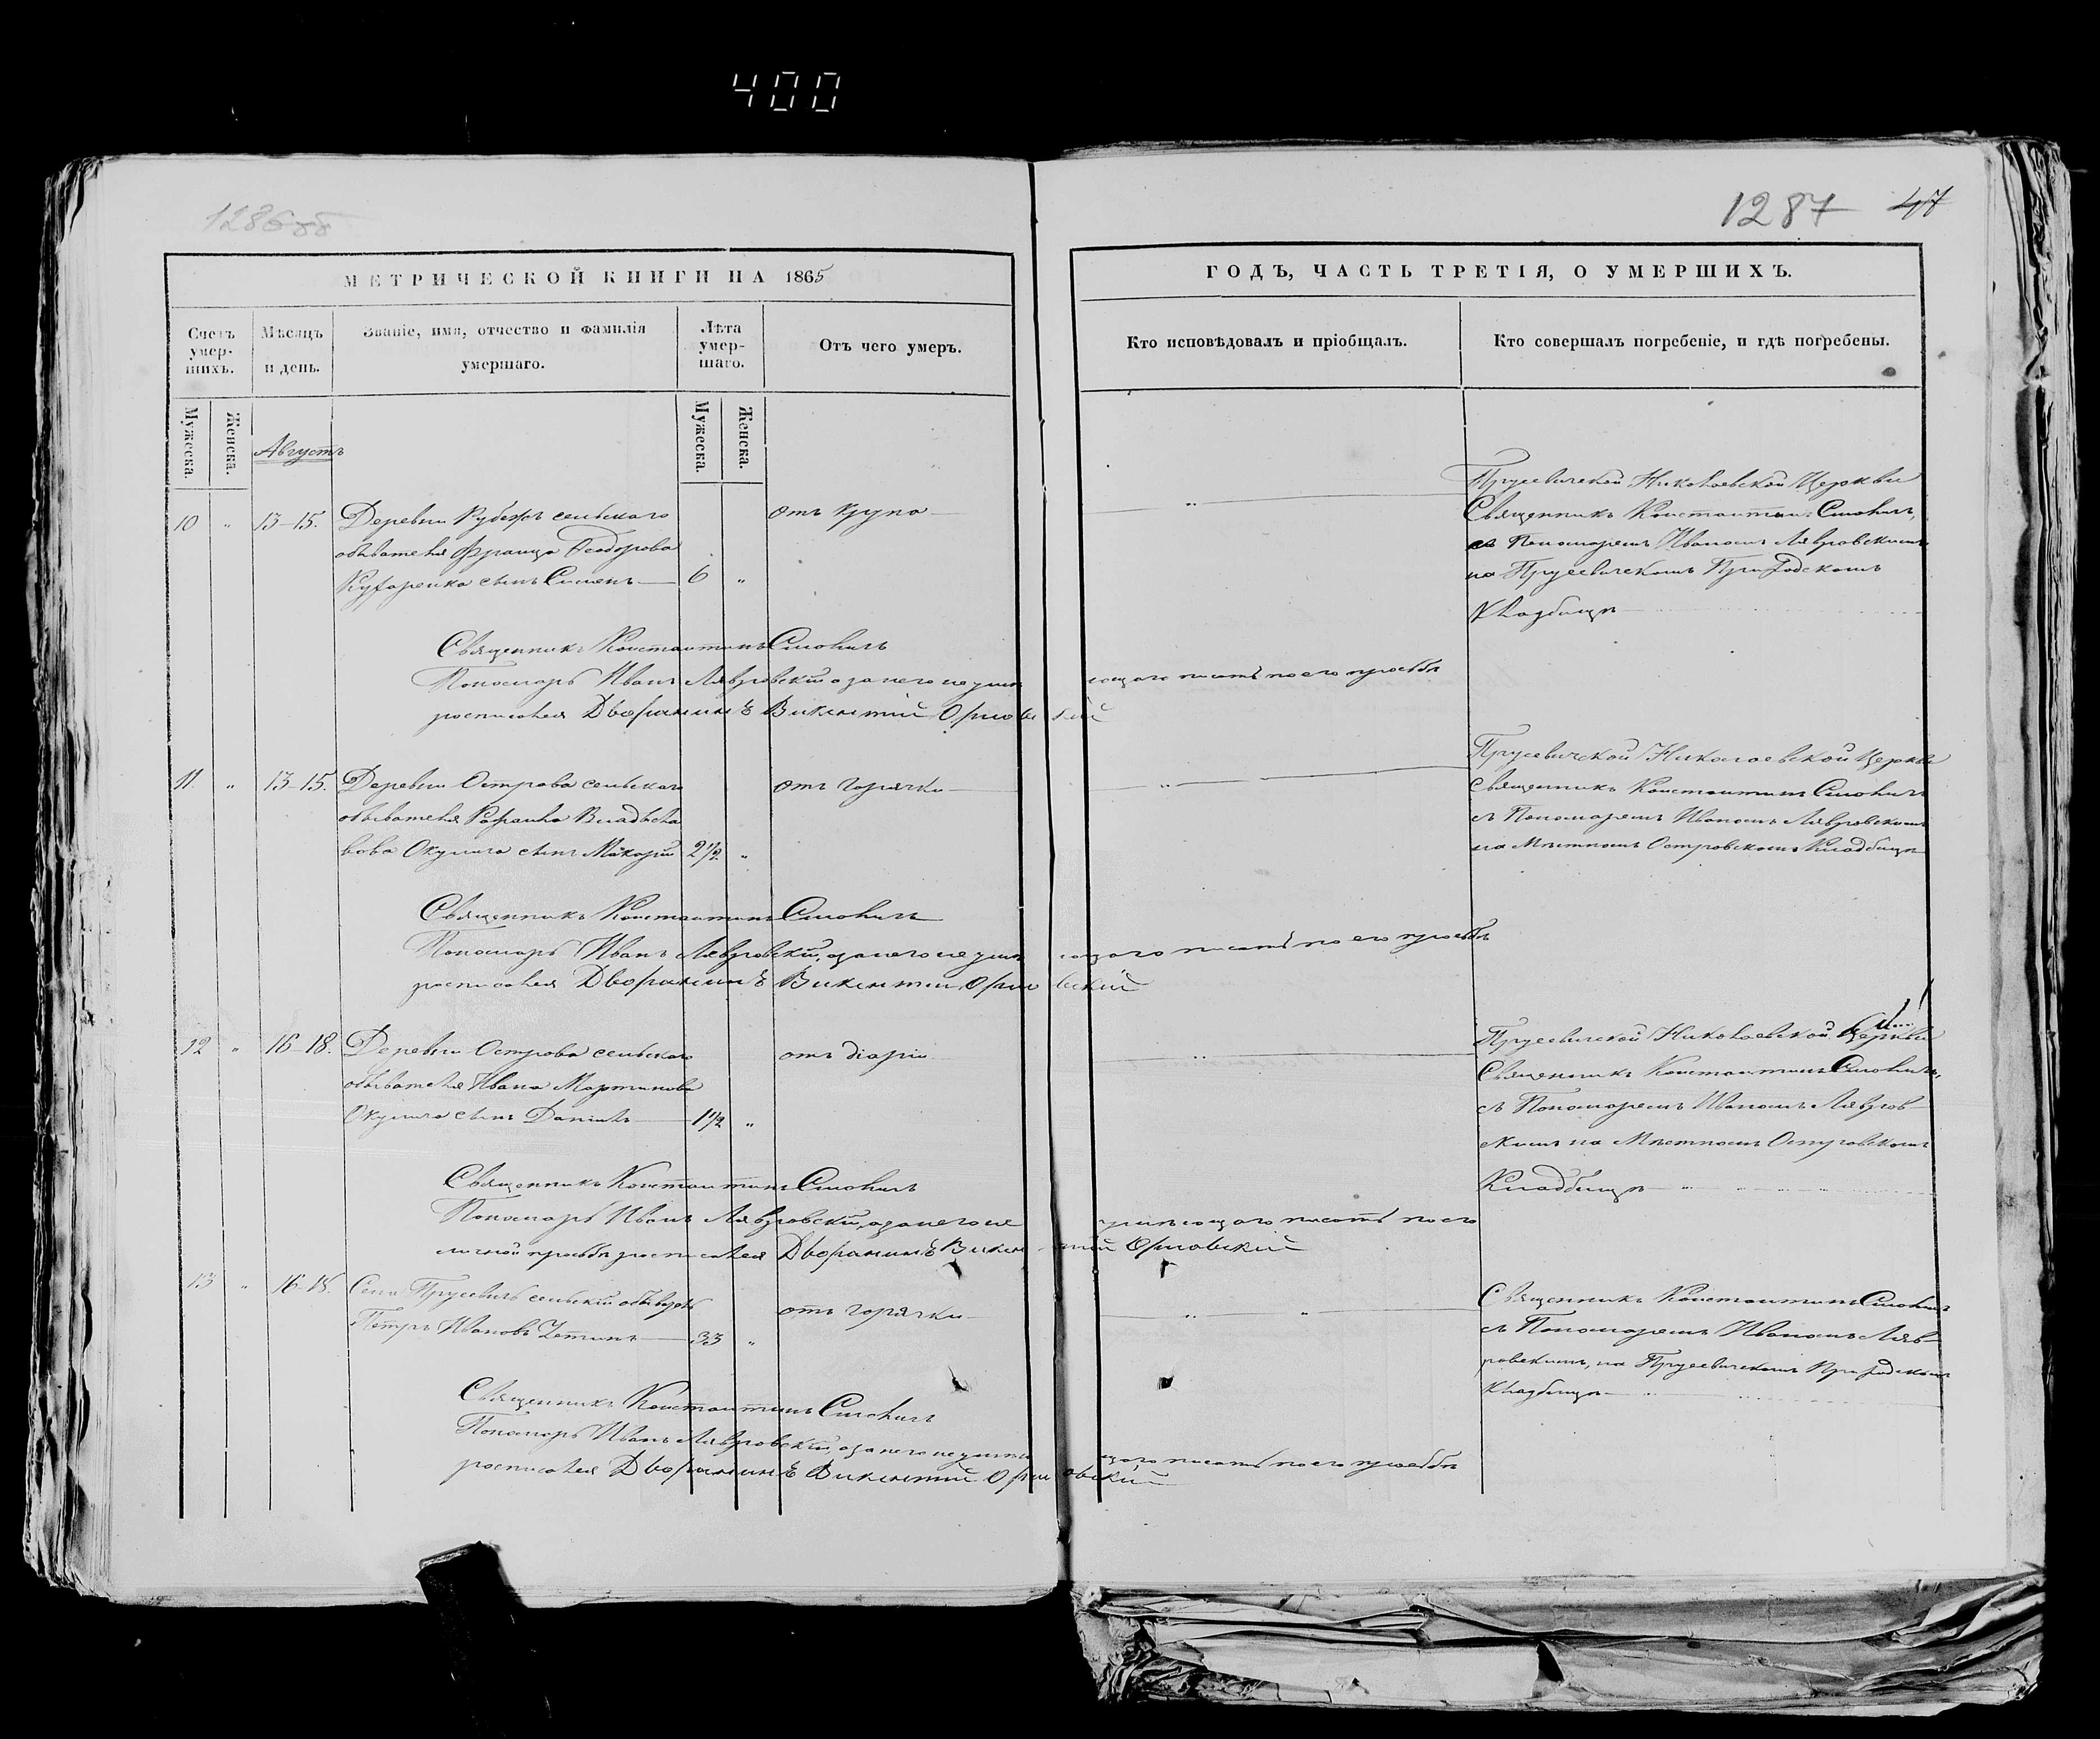 400
1286об
1287 47
МЕТРИЧЕСКОЙ КНИГИ НА 1865
ГОДЪ, ЧАСТЬ ТРЕТІЯ, О УМЕРШИХЪ.
Счетъ умер-шихъ.
Мѣсяцъ и день.
Званіе, имя, отчество и фамилія умершаго.
Лѣта умер-шаго.
Отъ чего умеръ.
Кто исповѣдовалъ и пріобщалъ.
Кто совершалъ погребеніе, и гдѣ погребены.
Мужеска.
Женска.
Августъ
Мужеска.
Женска.
10 " 13-15. Деревни Рубежъ сельскаго
обывателя Франца Ѳеодорова
Кухаренка сынъ Симеонъ 6 "
отъ крупа
"
Прусевичской Николаевской Церкви
Священникъ Константинъ Смоличъ,
съ Пономаремъ Иваномъ Лявровскимъ
на Прусевичскомъ Приходскомъ
Кладбищѣ
Священникъ Константинъ Смоличъ
Пономарь Иванъ Лявровскій а за него неумѣющаго писать по его прозьбѣ
росписался Дворянинъ Викентій Орловскій
11. " 13-15. Деревни Острова сельскаго
обывателя Рафаила Владисла
вова Окулича сынъ Макарій 2½ "
отъ горячки
"
Прусевичской Николаевской Церкви
Священникъ Константинъ Смоличъ
съ Пономаремъ Иваномъ Лявровскимъ
на Мѣстномъ Островскомъ Кладбищѣ
Священникъ Константинъ Смоличъ
Пономарь Иванъ Лявровскій, а за него неумѣющаго писать по его прозьбѣ
росписался Дворянинъ Викентій Орловскій
12 " 16-18. Деревни Острова сельскаго
обывателя Ивана Мартинова
Окулича сынъ Даніилъ 1½ "
отъ діаріи
"
Прусевичской Николаевской Церкви
Священникъ Константинъ Смоличъ,
съ Пономаремъ Иваномъ Лявров-
скимъ на Мѣстномъ Островскомъ
Кладбищѣ
Священникъ Константинъ Смоличъ
Пономарь Иванъ Лявровскій, а за него неумѣющаго писать по его
личной прозьбѣ росписался Дворянинъ Викентій Орловскій
13 " 16-18. Села Прусевичъ сельскій обыватель
Петръ Ивановъ 33 "
отъ горячки
" "
Священникъ Константинъ Смоличъ
съ Пономаремъ Иваномъ Ляв-
ровскимъ, на Прусевичскомъ Приходскомъ
Кладбищѣ
Священникъ Константинъ Смоличъ
Пономарь Иванъ Лявровскій, а за него неумѣющаго писать по его прозьбѣ
росписался Дворянинъ Викентій Орловскій